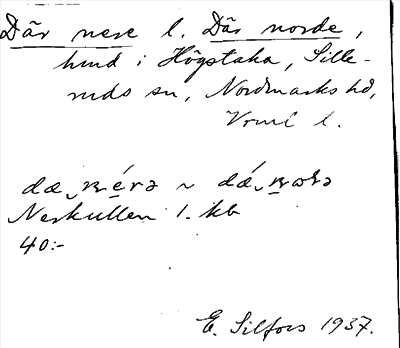 Där nere l. Där norde,
hmd i Högstaka, Sille-
ruds sn, Nordmarks hd,
Vrml l.
dæ ɴérə ~ dǽ
Nerkullen 1. kb
40:-
E. Silfors 1937.